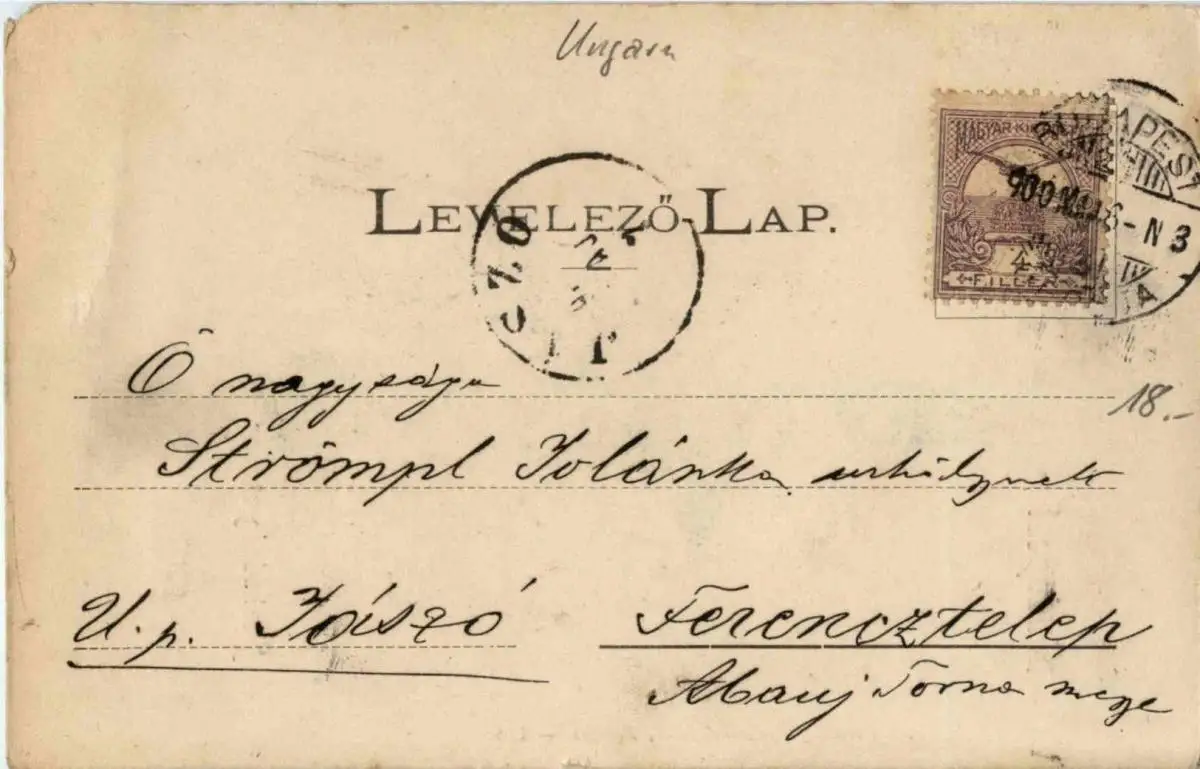 Ungarn
LEVELEZŐ-LAP.
MAGYAR
FILLÉR
BUDAPEST
900 - N 3
Ő nagysága
Strömpl Jolánka urhölgynek
18.-
U. p. Jászó
Ferencztelep
Abauj Torna megye